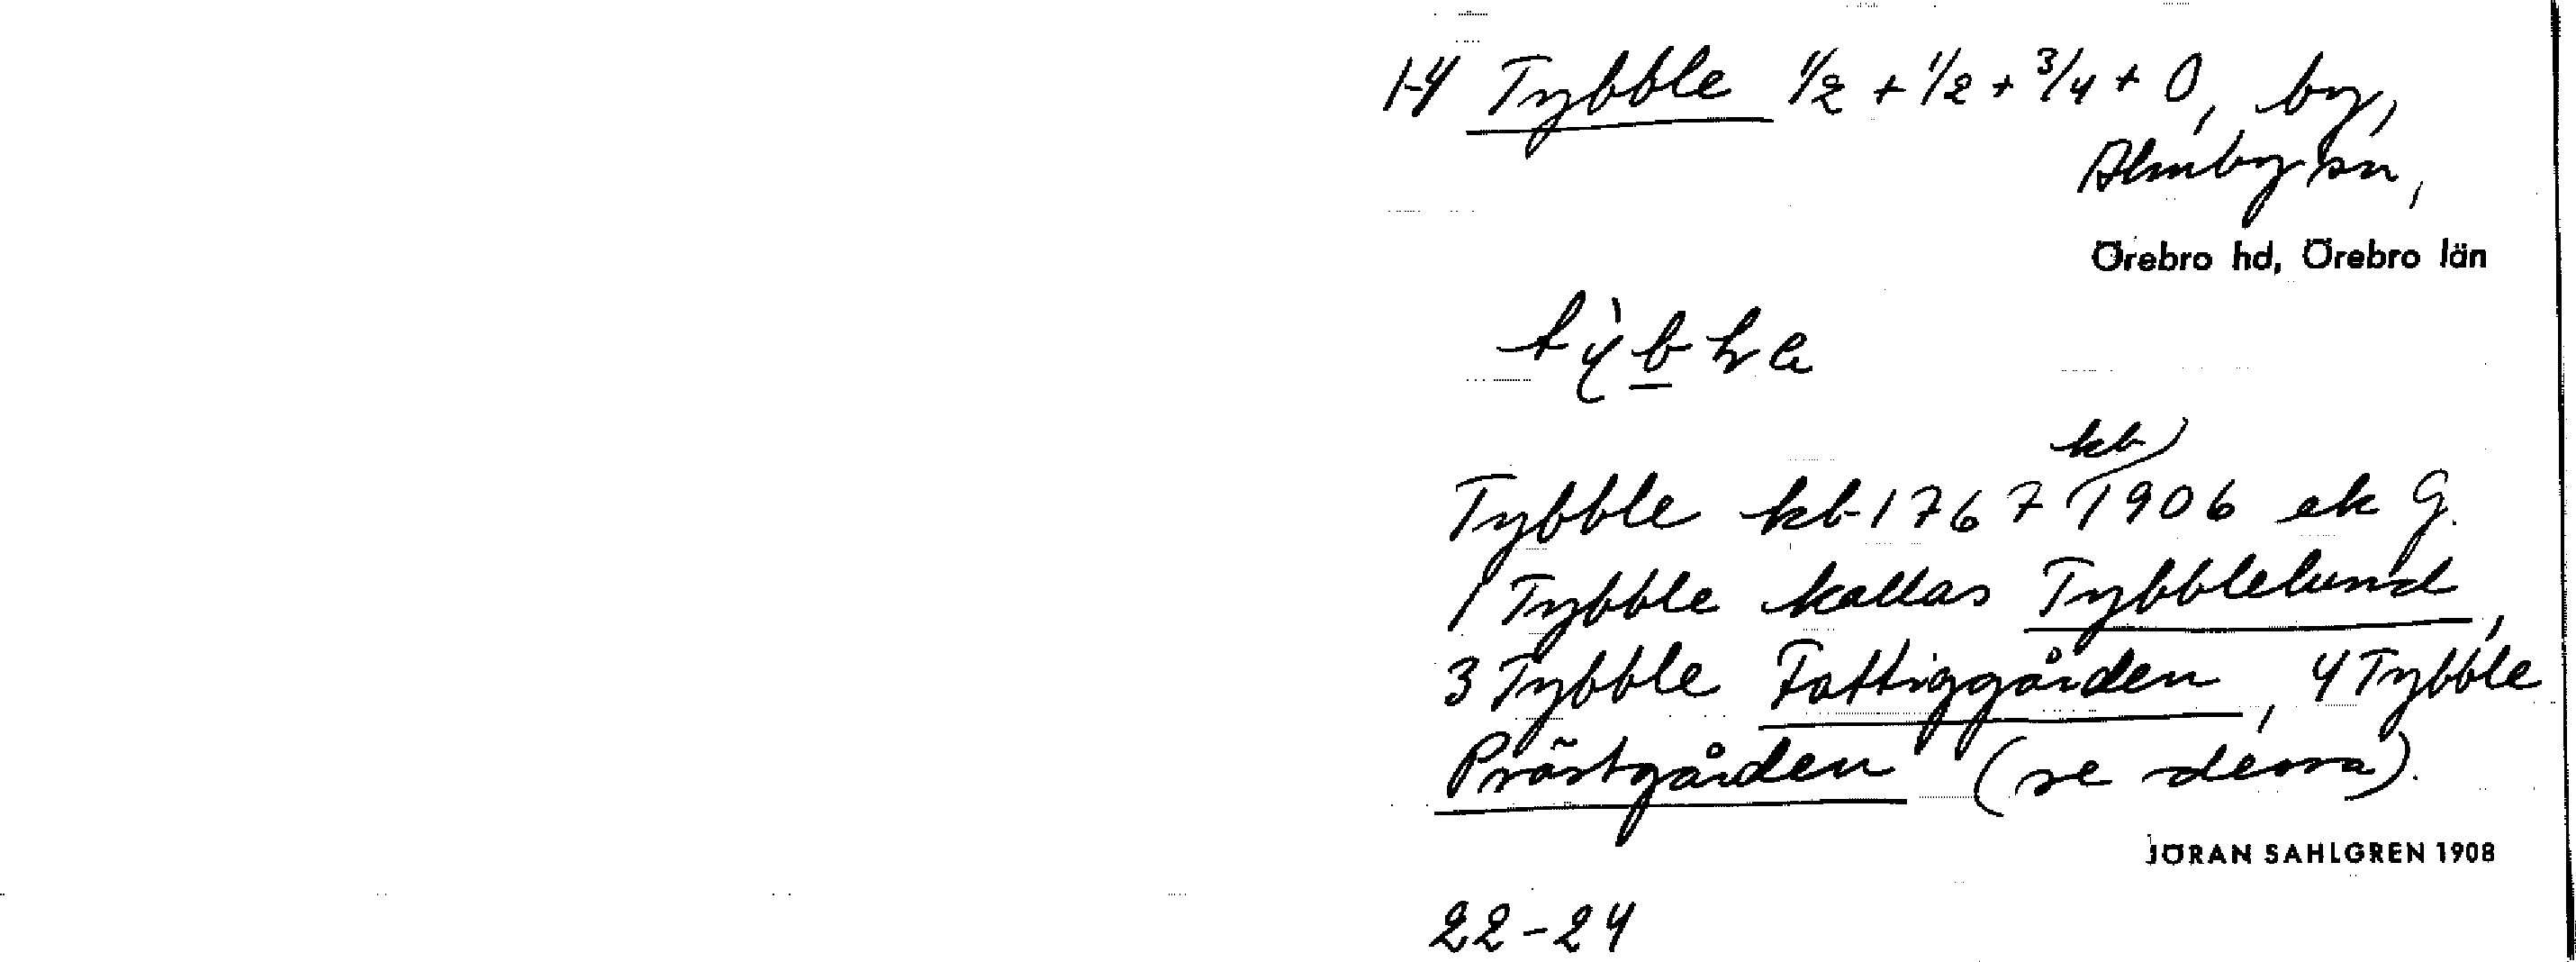 1-4 Tybble 1/2 + 1/2 + 3/4 + 0, by,
Almby sn,
Örebro hd, Örebro län
kb
Tybble kb 1767 1906 ek G.
1 Tybble kallas Tybblelund,
3 Tybble Fattiggården, 4 Tybble
Prästgården (se dessa).
JÖRAN SAHLGREN 1908
22-24